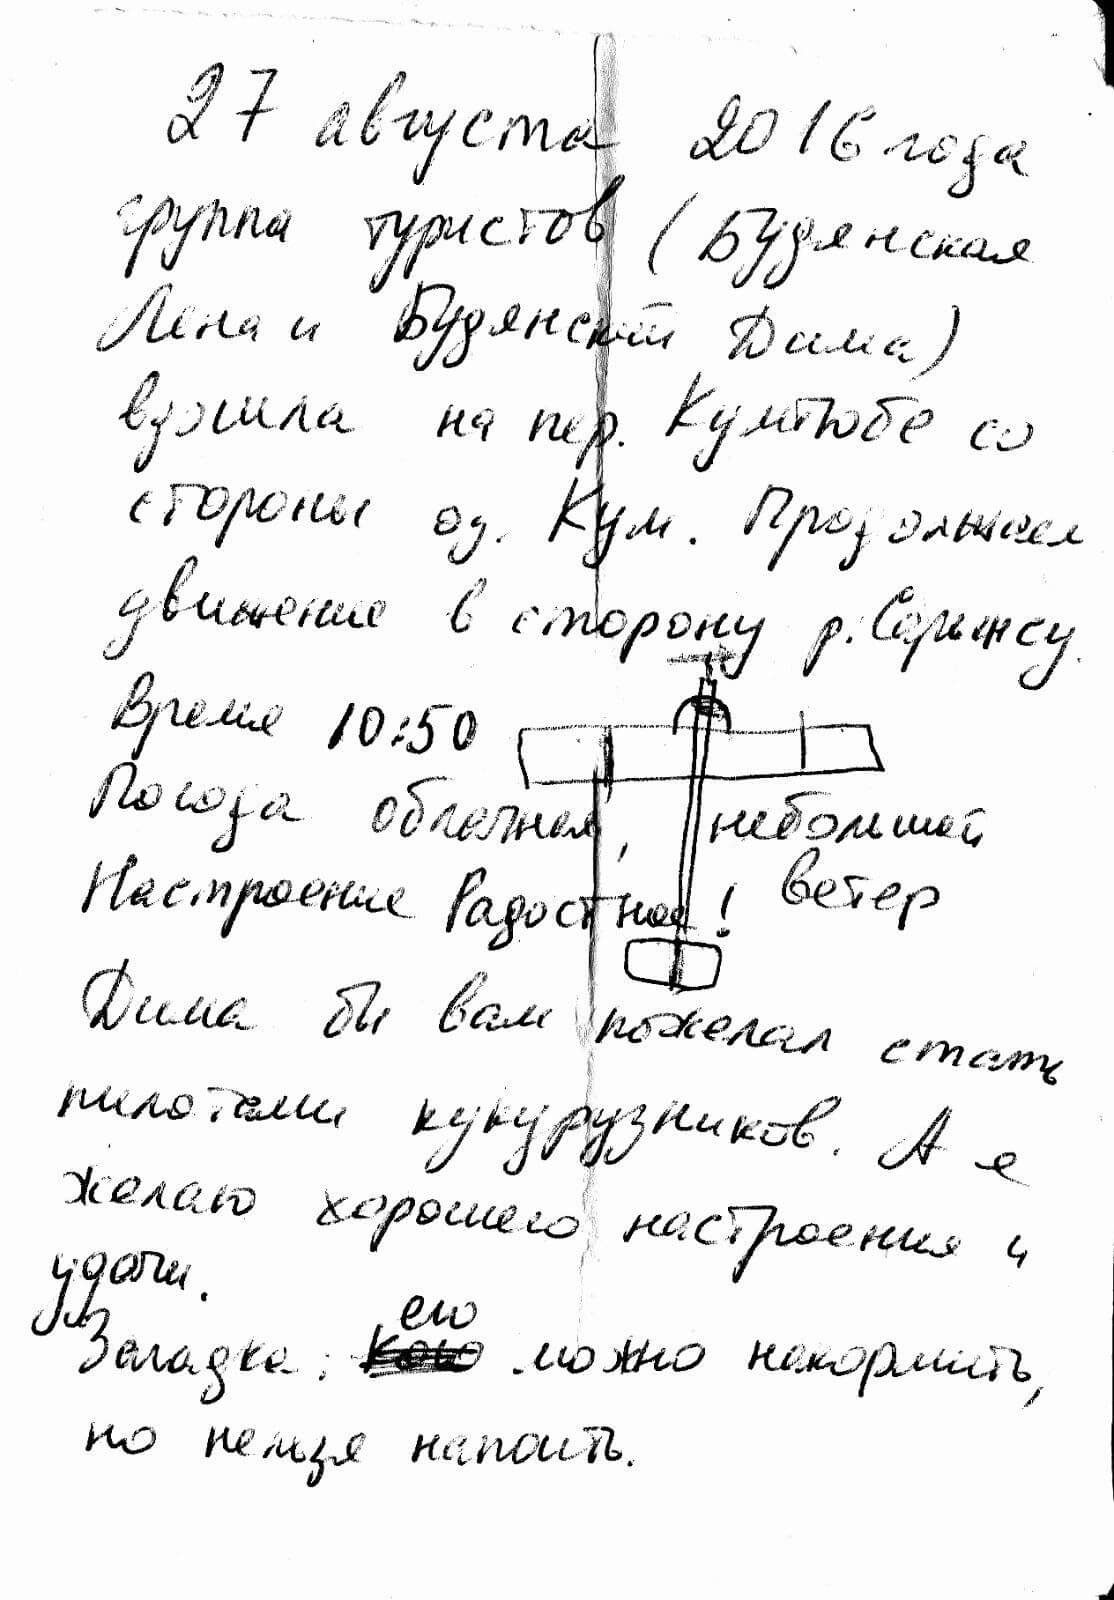 27 августа 2016 года
группа туристов (Будянская
Лена и Будянский Дима)
взошла на пер. Кумтюбе со
стороны оз. Кум. Продолжаем
движение в сторону р. Сарынсу.
Время 10:50
Погода облачная, небольшой
ветер
Настроение Радостное!
Дима бы вам пожелал стать
пилотами кукурузников. А я
желаю хорошего настроения и
удачи.
Загадка: его можно накормить,
но нельзя напоить.